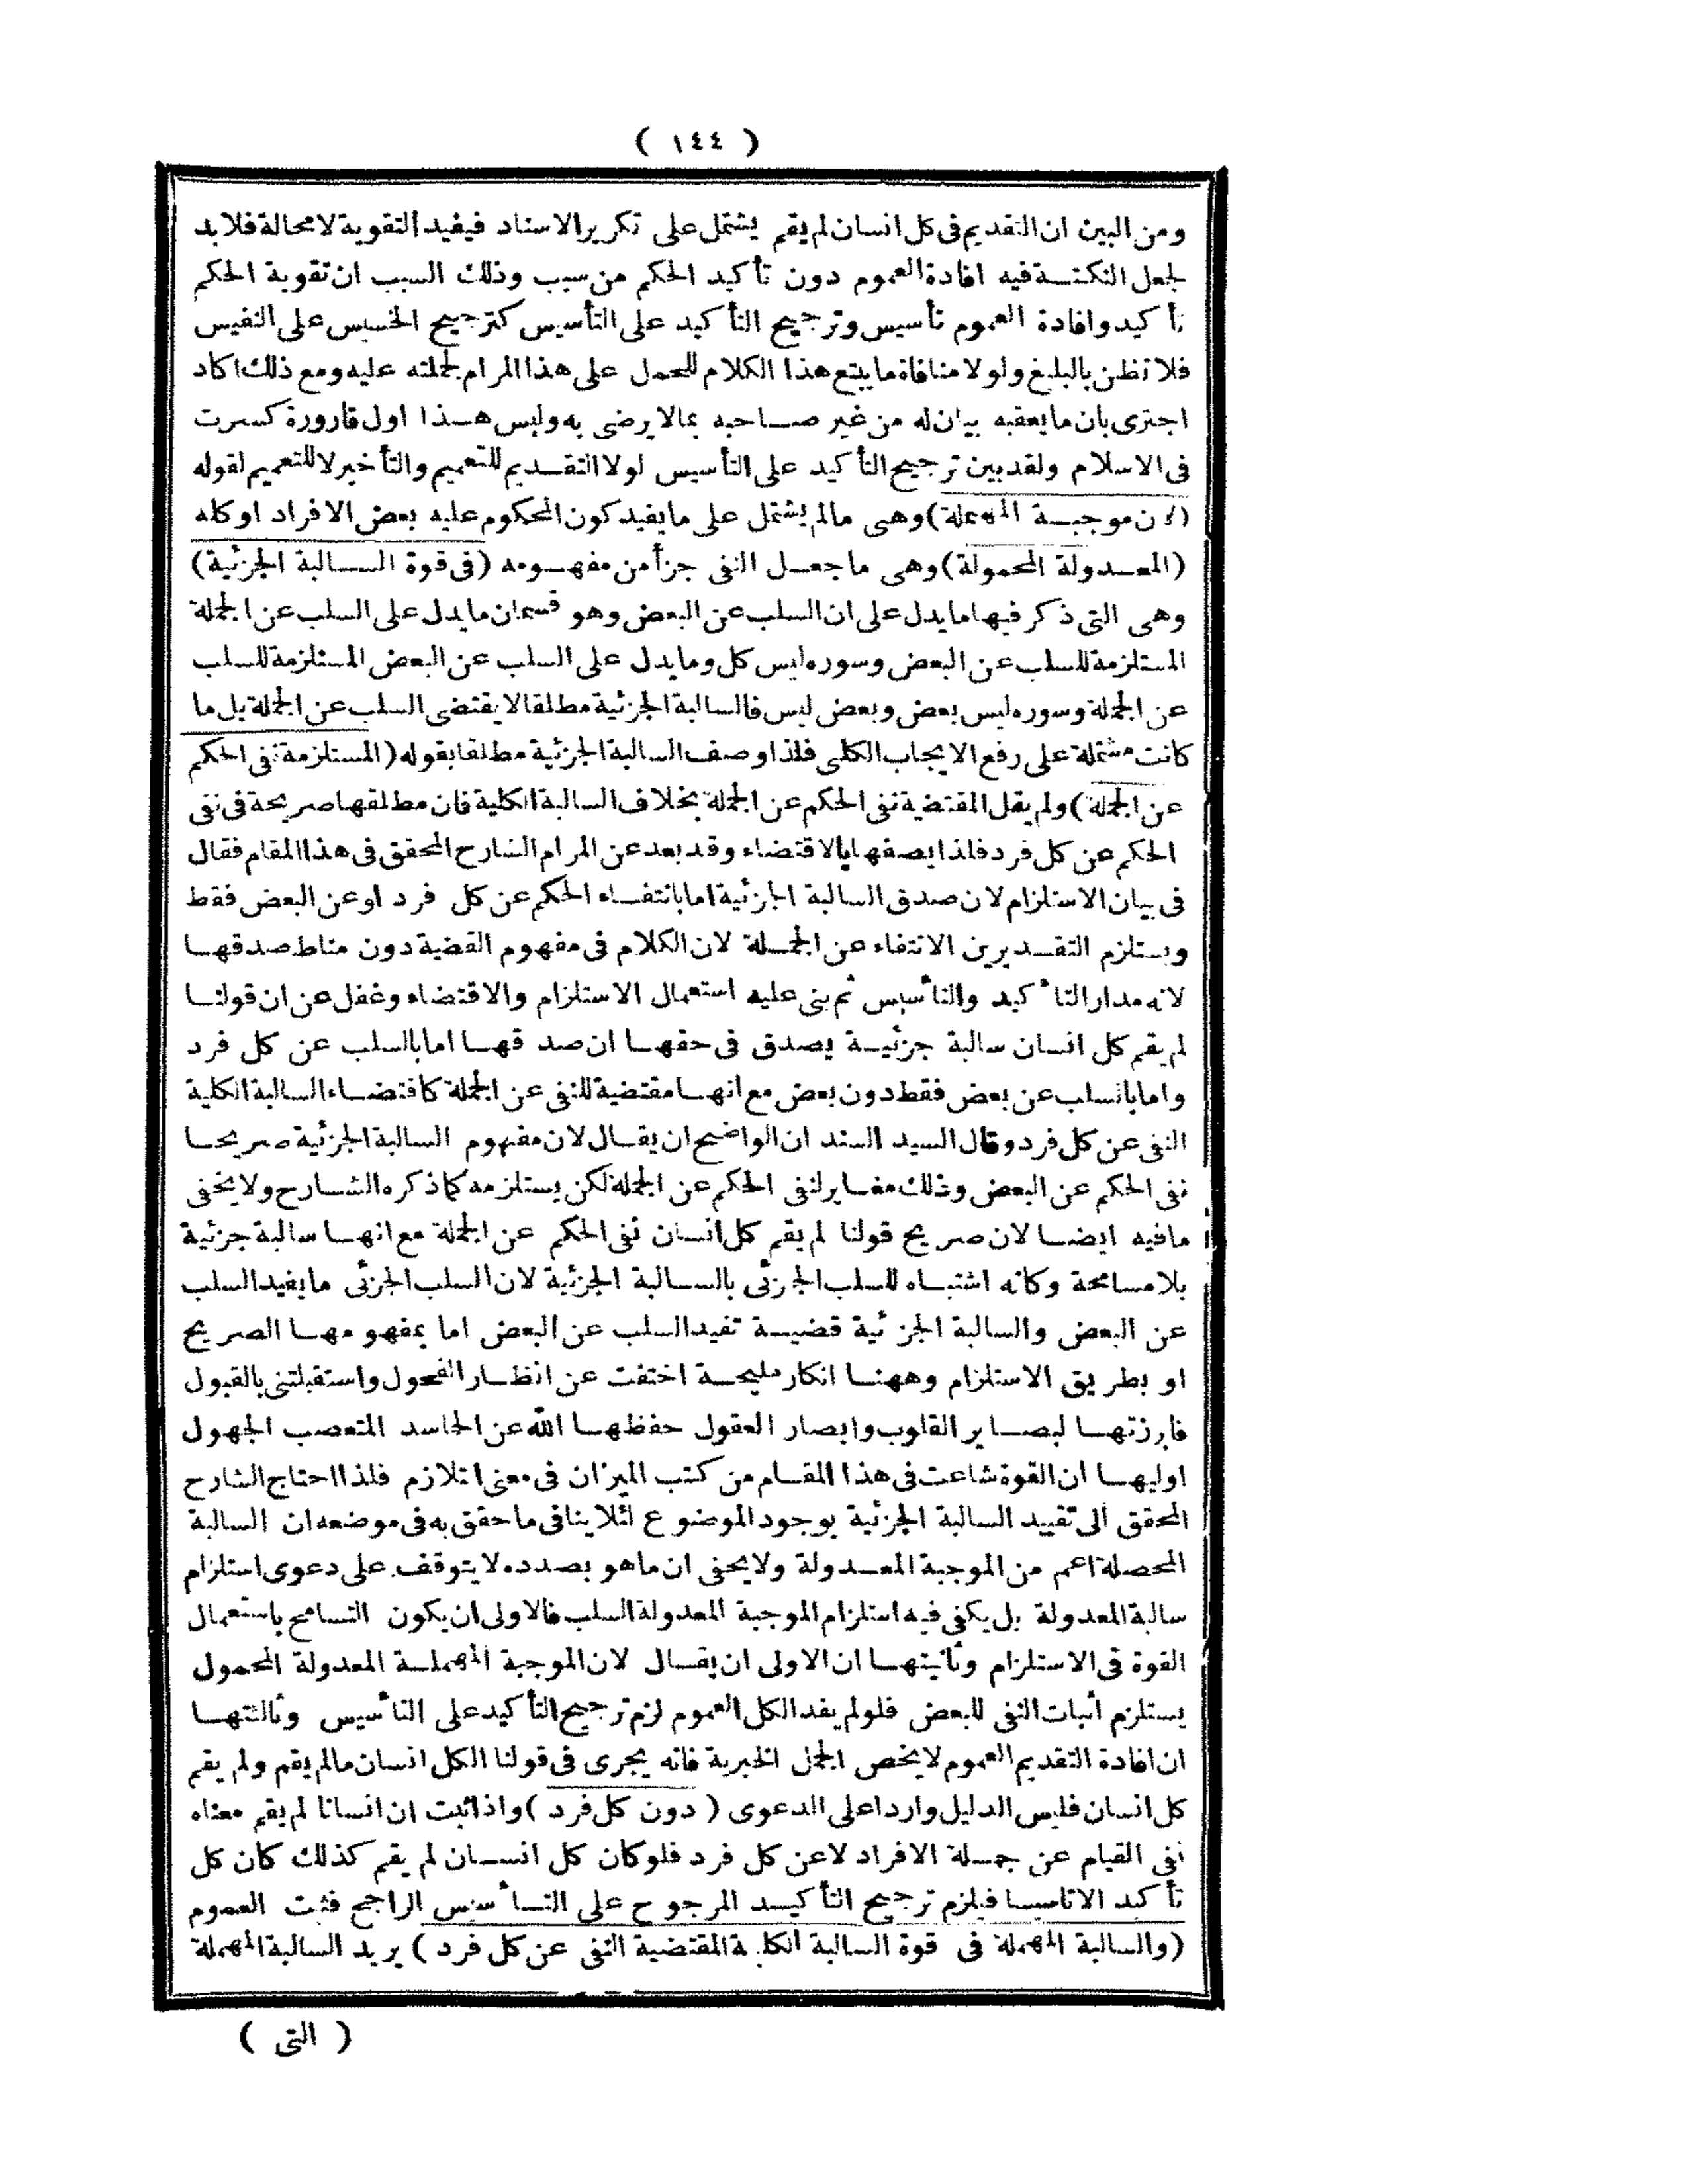 ( ١٤٤ )
ومن البين ان التقديم فى كل انسان لم يقم يشتمل على تكرير الاسناد فيفيد التقوية لا محالة فلا بد
لجعل النكتة فيه افادة العموم دون تأكيد الحكم من سبب وذلك السبب ان تقوية الحكم
تأكيد وافادة العموم تأسيس وترجيح التأكيد على التأسيس كترجيح الخسيس على النفيس
فلا تظن بالبليغ ولولا منافاة ما يتبع هذا الكلام للحمل على هذا المرام لحملته عليه ومع ذلك اكاد
اجترى بان ما يعقبه بيان له من غير صاحبه بمالا يرضى به وليس هذا اول قارورة كسرت
فى الاسلام ولقد بين ترجيح التأكيد على التأسيس لولا التقديم للتعميم والتأخير لا للتعميم لقوله
(لان موجبة المهملة) وهى مالم يشتمل على ما يفيد كون المحكوم عليه بعض الافراد او كله
(المعدولة المحمولة) وهى ما جعل النفى جزأ من مفهومه (فى قوة السالبة الجزئية)
وهى التى ذكر فيها ما يدل على ان السلب عن البعض وهو قسمان ما يدل على السلب عن الجملة
المستلزمة للسلب عن البعض وسوره ليس كل وما يدل على السلب عن البعض المستلزمة للسلب
عن الجملة وسوره ليس بعض وبعض ليس فالسالبة الجزئية مطلقا لا يقتضى السلب عن الجملة بل ما
كانت مشتملة على رفع الايجاب الكلى فلذا وصف السالبة الجزئية مطلقا بقوله (المستلزمة نفى الحكم
عن الجملة) ولم يقل المقتضية نفى الحكم عن الجملة بخلاف السالبة الكلية فان مطلقها صريحة فى نفى
الحكم عن كل فرد فلذا يصفها بالاقتضاء وقد بعد عن المرام الشارح المحقق فى هذا المقام فقال
فى بيان الاستلزام لان صدق السالبة الجزئية اما بانتفاء الحكم عن كل فرد او عن البعض فقط
ويستلزم التقديرين الانتفاء عن الجملة لان الكلام فى مفهوم القضية دون مناط صدقها
لانه مدار التأكيد والتأسيس ثم بنى عليه استعمال الاستلزام والاقتضاء وغفل عن ان قولنا
لم يقم كل انسان سالبة جزئية يصدق فى حقها ان صدقها اما بالسلب عن كل فرد
واما بالسلب عن بعض فقط دون بعض مع انها مقتضية للنفى عن الجملة كاقتضاء السالبة الكلية
النفى عن كل فرد وقال السيد السند ان الواضح ان يقال لان مفهوم السالبة الجزئية صريحا
نفى الحكم عن البعض وذلك مغاير لنفى الحكم عن الجملة لكن يستلزمه كما ذكره الشارح ولا يخفى
مافيه ايضا لان صريح قولنا لم يقم كل انسان نفى الحكم عن الجملة مع انها سالبة جزئية
بلا مسامحة وكانه اشتباه للسلب الجزئى بالسالبة الجزئية لان السلب الجزئى ما يفيد السلب
عن البعض والسالبة الجزئية قضية تفيد السلب عن البعض اما بمفهومها الصريح
او بطريق الاستلزام وههنا انكار مليحة اختفت عن انظار الفحول واستقبلتنى بالقبول
فابرزتها لبصاير القلوب وابصار العقول حفظها الله عن الحاسد المتعصب الجهول
اوليها ان القوة شاعت فى هذا المقام من كتب الميزان فى معنى التلازم فلذا احتاج الشارح
المحقق الى تقييد السالبة الجزئية بوجود الموضوع لئلا ينافى ما حقق به فى موضعه ان السالبة
المحصلة اعم من الموجبة المعدولة ولا يخفى ان ما هو بصدده لا يتوقف على دعوى استلزام
سالبة المعدولة بل يكفى فيه استلزام الموجبة المعدولة السلب فالاولى ان يكون التسامح باستعمال
القوة فى الاستلزام وثانيتها ان الاولى ان يقال لان الموجبة المهملة المعدولة المحمول
يستلزم اثبات النفى للبعض فلو لم يفد الكل العموم لزم ترجيح التأكيد على التأسيس وثالثتها
ان افادة التقديم العموم لا يخص الجمل الخبرية فانه يجرى فى قولنا الكل انسان مالم يقم ولم يقم
كل انسان فليس الدليل واردا على الدعوى ( دون كل فرد ) واذا ثبت ان انسانا لم يقم معناه
نفى القيام عن جملة الافراد لا عن كل فرد فلو كان كل انسان لم يقم كذلك كان كل
تأكيد الاتاسيسا فيلزم ترجيح التأكيد المرجوح على التأسيس الراجح فثبت العموم
(والسالبة المهملة فى قوة السالبة الكلية المقتضية النفى عن كل فرد ) يريد السالبة المهملة
( التى )